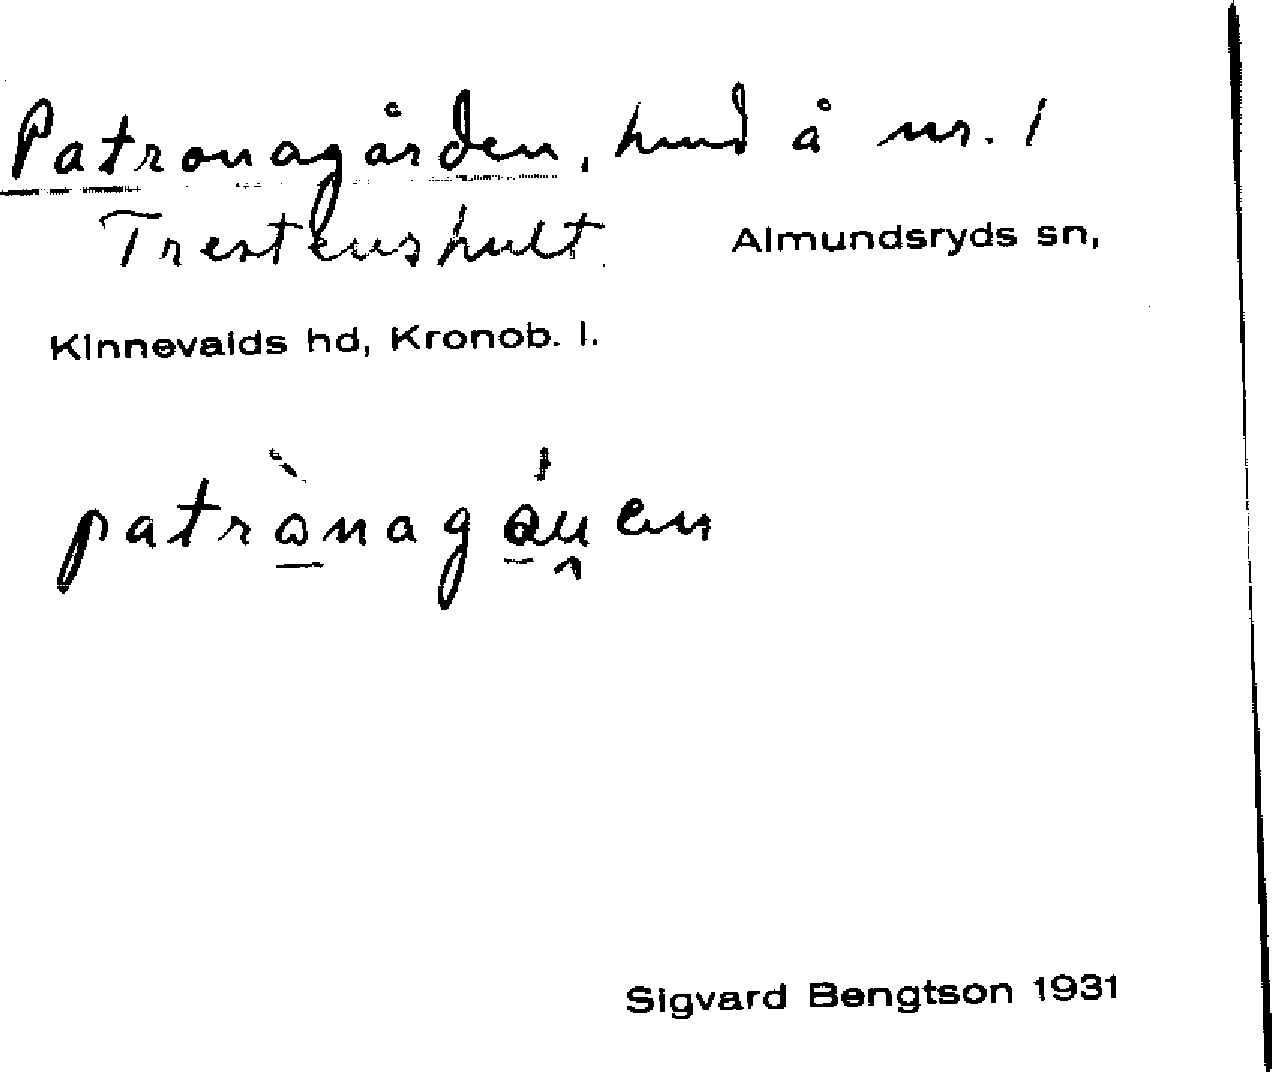 Patronagården, hmd å nr. 1
Trestenshult Almundsryds sn,
Kinnevalds hd, Kronob. l.
patrònagáu̯en
Sigvard Bengtson 1931